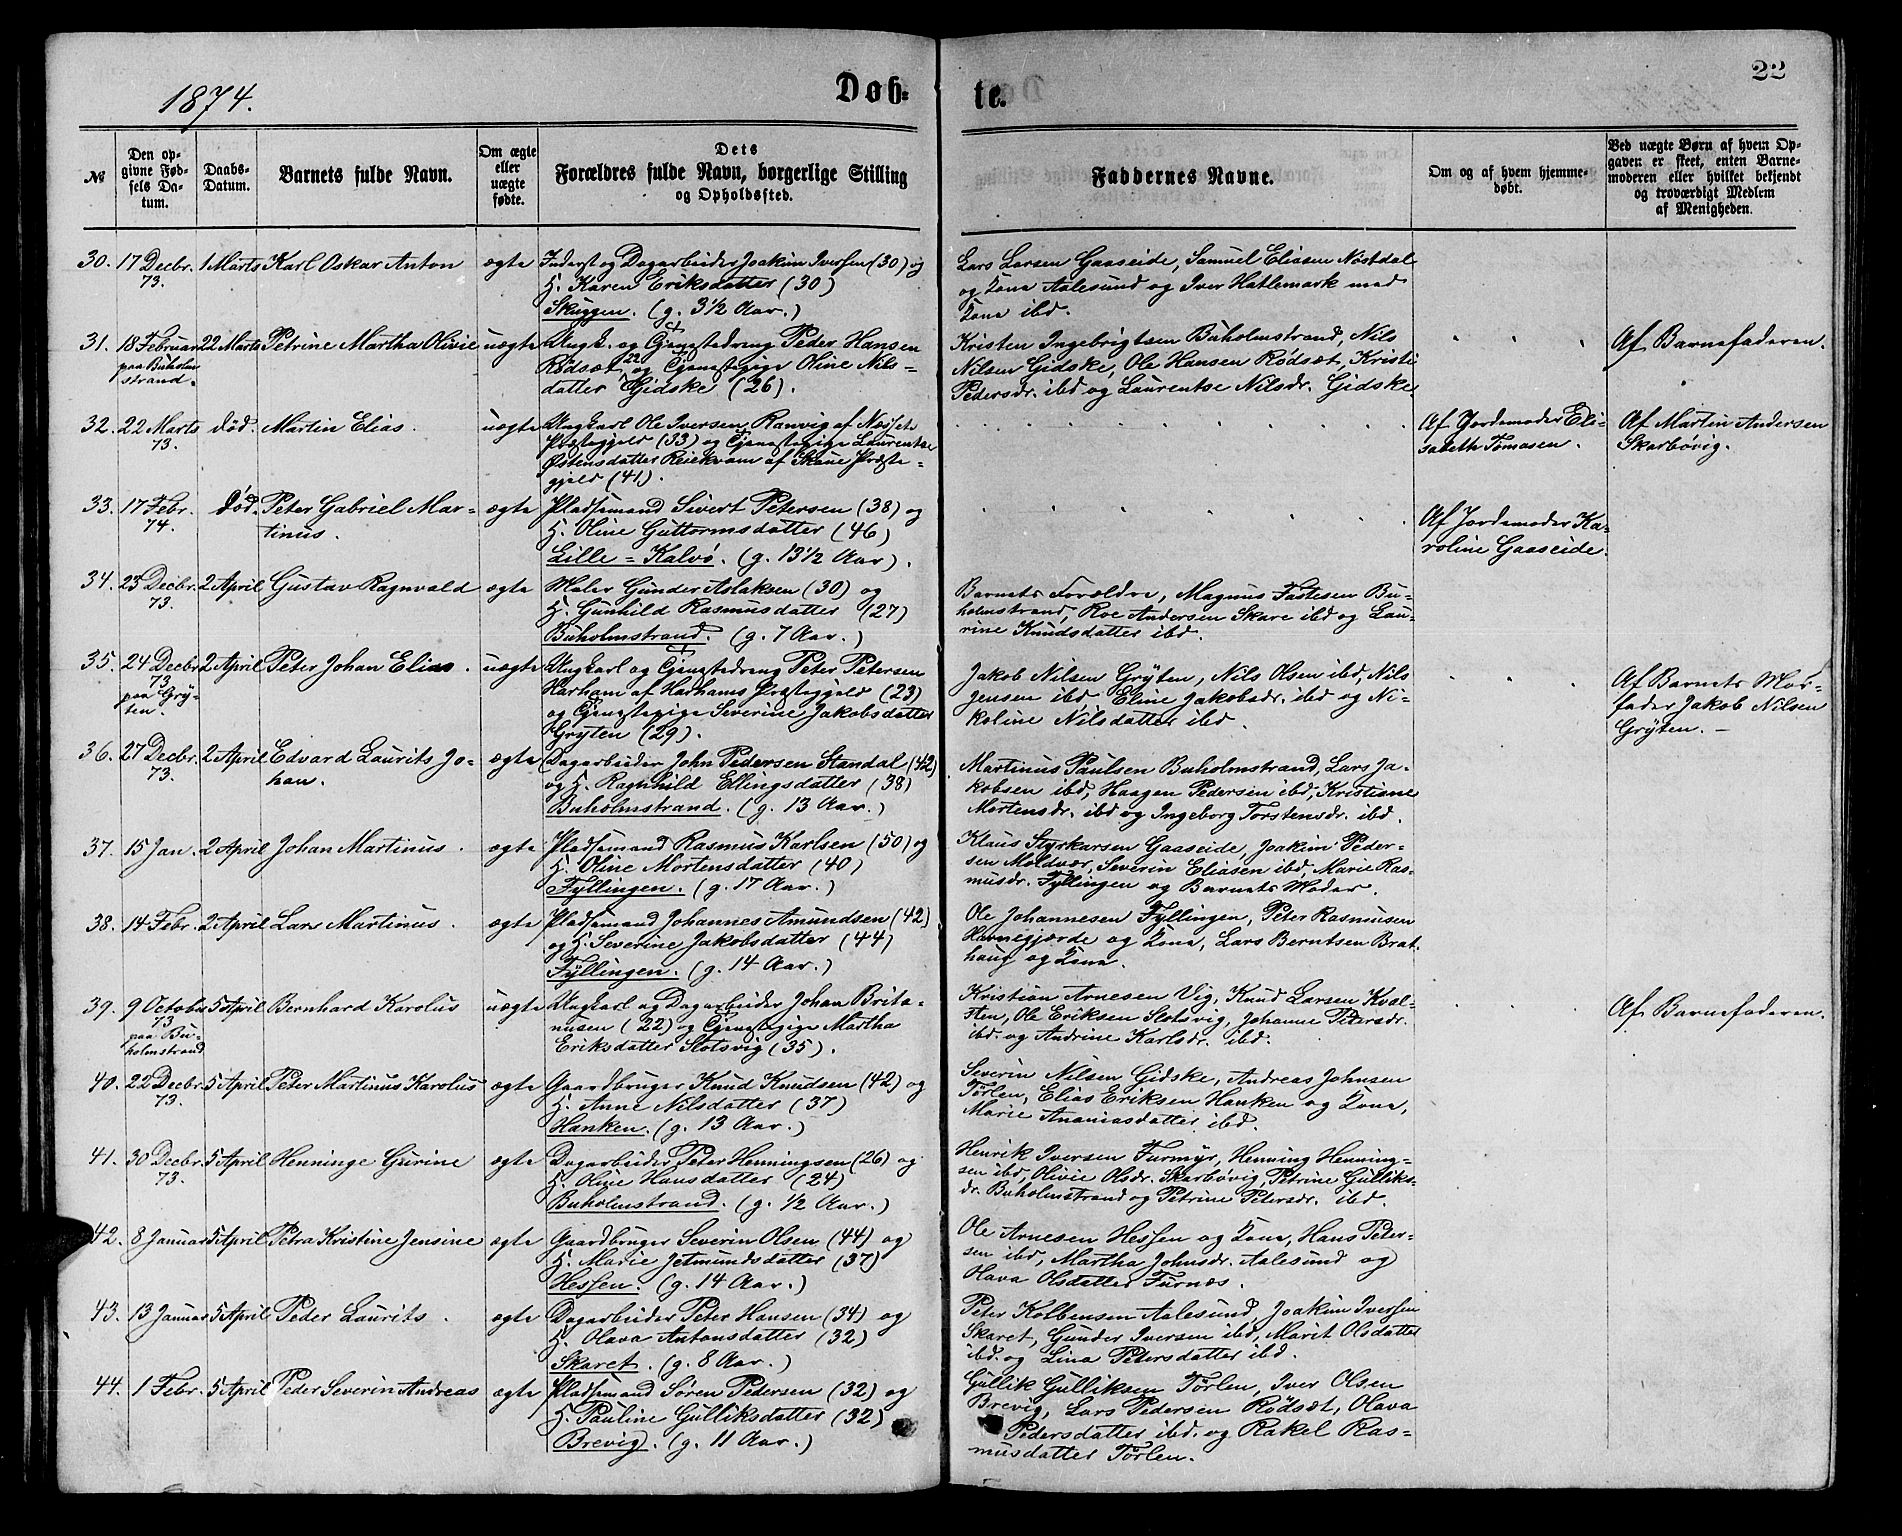 1874.
Døb-
te.
22
№
Den opgivne Fødsels Datum.
Daabs-Datum.
Barnets fulde Navn.
Om ægte eller uægte fødte.
Dets
Forældres fulde Navn, borgerlige Stilling
og Opholdssted.
Faddernes Navne.
Om og af hvem hjemmedøbt.
Ved uægte Børn af hvem Opgaven er skeet, enten Barnemoderen eller hvilket bekjendt og troværdigt Medlem af Menigheden.
30. 17 Decbr. 73. 1 Marts Karl Oskar Anton ægte Inderst og Dagarbeider Joakim Iversen (30) og
H. Karen Eriksdatter (30)
Skuggen. (g. 3½ Aar.)
Lars Larsen Gaaseide, Samuel Eliasen Nøstdal
og Kona Aalesund og Iver Hatlemark med
Kona ibd.
31. 18 Februar paa Buholmstrand. 22 Marts Petrine Martha Olivie uægte Ungk. og Tjenestedreng Peder Hansen
Rødsæt 22 og Tjenestepige Oline Nils-
datter Gidske (26).
Kristen Ingebrigtsen Buholmstrand, Nils
Nilsen Gidske, Ole Hansen Rødsæt, Kristi
Pedersdr. ibd og Laurentse Nilsdr. Gidske
Af Barnefaderen.
32. 22 Marts 73. død. Martin Elias. uægte Ungkarl Ole Iversen Ranvig af Næsset
Præstegjeld (33) og Tjenestepige Laurentse
Østensdatter Reiekvam af Skaue Præste-
gjeld (41).
Af Jordemoder Eli-
sabeth Tomasen.
Af Martin Andersen
Skarbøvig.
33. 17 Febr. 74. død. Peter Gabriel Mar-
tinus. ægte Pladsemand Sivert Petersen (38) og
H. Oline Guttormsdatter (46)
Lille-Kalvø. (g. 13½ Aar).
Af Jordemoder Ka-
roline Gaaseide.
34. 23 Decbr. 73. 2 April Gustav Ragnvald ægte Maler Gunder Aslaksen (30) og
H. Gunhild Rasmusdatter (27)
Buholmstrand. (g. 7 Aar.)
Barnets Forældre, Magnus Fastesen Bu-
holmstrand, Roe Andersen Skare ibd og Lau-
rine Knudsdatter ibd.
35. 24 Decbr 73 paa Gryten. 2 April Peter Johan Elias. uægte Ungkarl og Tjenestedreng Peter Petersen
Harham af Harhams Præstegjeld (23)
og Tjenestepige Severine Jakobsdatter
Gryten (29).
Jakob Nilsen Gryten, Nils Olsen ibd, Nils
Jensen ibd, Eline Jakobsdr. ibd og Ni-
koline Nilsdatter ibd.
Af Barnets Mor-
fader Jakob Nilsen
Gryten. –
36. 27 Decbr. 73. 2 April Edvard Laurits Jo-
han. ægte Dagarbeider John Pedersen Standal (42)
og H. Raghild Ellingsdatter (38)
Buholmstrand. (g. 13 Aar.)
Martinus Paulsen Buholmstrand, Lars Ja-
kobsen ibd, Haagen Pedersen ibd, Kristiane
Martensdr. ibd og Ingeborg Torstensdr. ibd.
37. 15 Jan. 2 April Johan Martinus. ægte Pladsemand Rasmus Karlsen (50) og
H. Oline Mortensdatter (40)
Fyllingen. (g. 17 Aar.)
Klaus Styrkarsen Gaaseide, Joakim Peder-
sen Moldvær, Severin Eliasen ibd, Marie Ras-
musdr. Fyllingen og Barnets Moder.
38. 14 Febr. 2 April Lars Martinus. ægte Pladsemand Johannes Amundsen (42)
og H. Severine Jakobsdatter (44)
Fyllingen. (g. 14 Aar.)
Ole Johannesen Fyllingen, Peter Rasmusen
Havnegjærde og Kona, Lars Berntsen Brat-
haug og Kona.
39. 9 October 73 paa Buholmstrand 5 April Bernhard Karolus uægte Ungkarl og Dagarbeider Johan Brita-
nusen (22) og Tjenestepige Martha
Eriksdatter Slotsvig (35).
Kristian Arnesen Vig, Knud Larsen Kval-
sten, Ole Eriksen Slotsvig, Johanne Petersdr.
ibd. og Andrine Karlsdr. ibd.
Af Barnefaderen.
40. 22 Decbr. 73. 5 April Peter Martinus Karolus ægte Gaardbruger Knud Knudsen (42) og
H. Anne Nilsdatter (37)
Hanken. (g. 13 Aar.)
Severin Nilsen Gidske, Andreas Johnsen
Tørlen, Elias Eriksen Hanken og Kona,
Marie Ananiasdatter ibd.
41. 30 Decbr. 73. 5 April Henninge Gurine ægte Dagarbeider Peter Henningsen (26) og
H. Olivie Hansdatter (24)
Buholmstrand. (g. ½ Aar.)
Henrik Iversen Furmyr, Henning Henning-
sen ibd, Olivie Olsdr. Skarbøvig, Petrine Gulliks-
dr. Buholmstrand og Petrine Petersdr. ibd.
42. 8 Januar 5 April Petra Kristine Jensine ægte Gaardbruger Severin Olsen (44) og
H. Marie Jetmundsdatter (37)
Hessen. (g. 14 Aar.)
Ole Arnesen Hessen og Kona, Hans Peter-
sen ibd, Martha Johnsdr. Aalesund og
Olava Olsdatter Furnæs.
43. 13 Januar 5 April Peder Laurits. ægte Dagarbeider Peter Hansen (34) og
H. Olava Antonsdatter (32)
Skaret. (g. 8 Aar.)
Peter Kolbensen Aalesund, Joakim Iversen
Skaret, Gunder Iversen ibd, Marit Olsdatter
ibd. og Lina Petersdatter ibd.
44. 1 Febr. 5 April Peder Severin Andreas ægte Pladsemand Søren Pedersen (32) og
H. Pauline Gulliksdatter (32)
Brevig. (g. 11 Aar.)
Gullik Gulliksen Tørlen, Iver Olsen
Brevig, Lars Pedersen Rødsæt, Olava
Pedersdatter ibd. og Rakel Ras-
musdatter Tørlen.